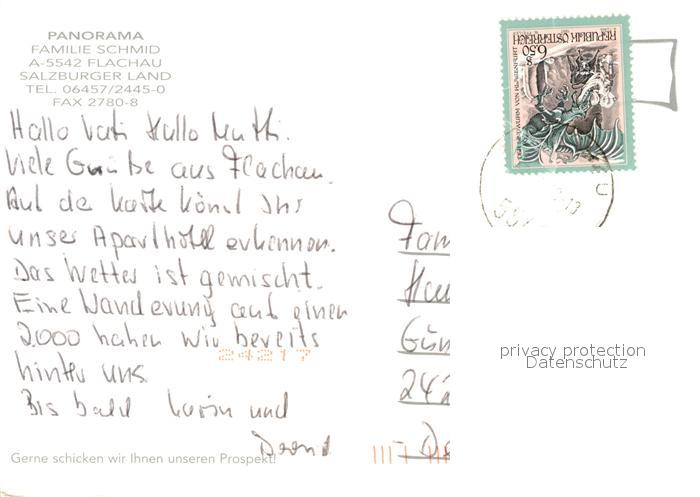 PANORAMA
FAMILIE SCHMID
A-5542 FLACHAU
SALZBURGER LAND
TEL. 06457/2445-0
FAX 2780-8
Hallo Vati Hallo Mutti.
Viele Grüße aus Flachau.
Auf der Karte könnt Ihr
unser Aparthotel erkennen.
Das Wetter ist gemischt.
Eine Wanderung auf einen
2.000 haben wir bereits
hinter uns.
Bis bald Karin und
Gerne schicken wir Ihnen unseren Prospekt!
24217
REPUBLIK ÖSTERREICH
S 6.50
DER LINDWURM VON KLAGENFURT
Fam
Gün
242
privacy protection
Datenschutz